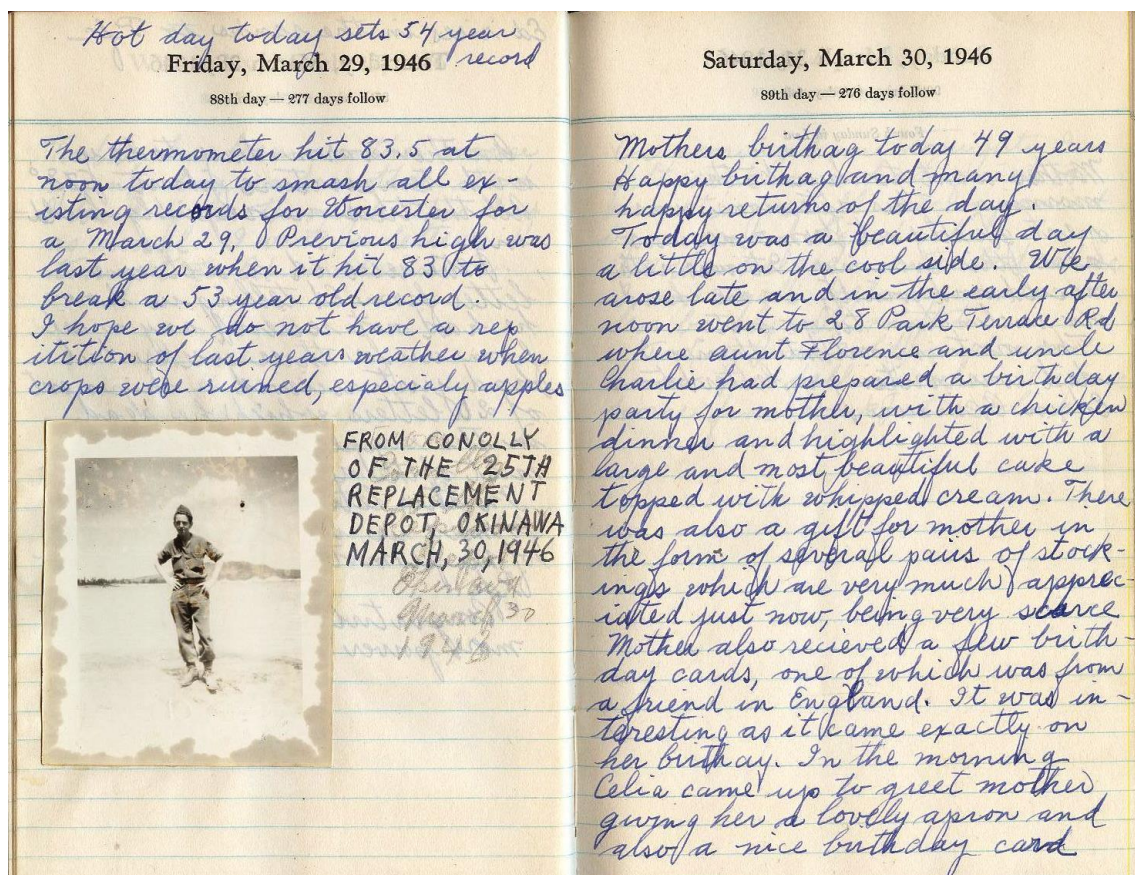 Hot day today sets 54 year
record
Friday, March 29, 1946
88th day — 277 days follow
The thermometer hit 83.5 at
noon today to smash all ex-
isting records for Worcester for
a March 29. Previous high was
last year when it hit 83 to
break a 53 year old record.
I hope we do not have a rep
itition of last years weather when
crops were ruined, especialy apples
FROM CONOLLY
OF THE 25TH
REPLACEMENT
DEPOT, OKINAWA
MARCH, 30, 1946
Okinawa
March 30
Saturday, March 30, 1946
89th day — 276 days follow
Mothers birthag today 49 years
Happy birthag and many
happy returns of the day.
Today was a beautiful day
a little on the cool side. We
arose late and in the early after
noon went to 28 Park Terrace Rd
where aunt Florence and uncle
Charlie had prepared a birthday
party for mother, with a chicken
dinner and highlighted with a
large and most beautiful cake
topped with whipped cream. There
was also a gift for mother in
the form of several pairs of stock-
ings which are very much apprec-
iated just now, being very scarce
Mother also recieved a few birth-
day cards, one of which was from
a friend in England. It was in-
teresting as it came exactly on
her birthay. In the morning
Celia came up to greet mother
giving her a lovely apron and
also a nice birthday card